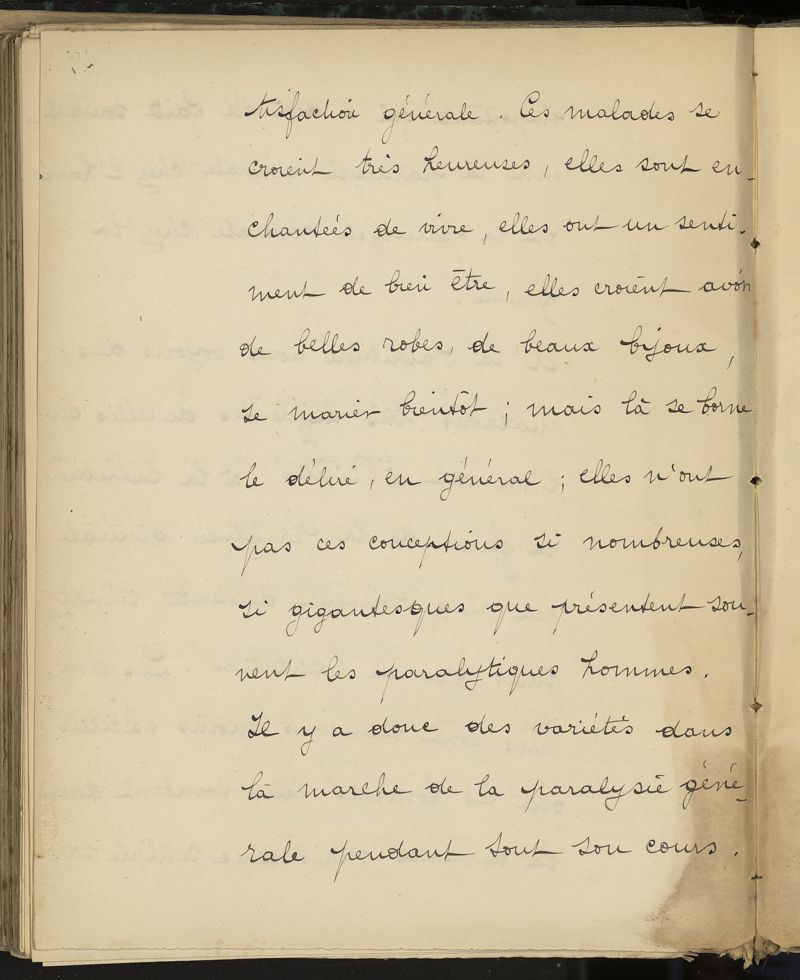 tisfaction générale. Ces malades se
croient très heureuses, elles sont en-
chantées de vivre, elles ont un senti-
ment de bien être, elles croient avoir
de belles robes, de beaux bijoux,
se marier bientôt ; mais là se borne
le délire, en général ; elles n'ont
pas ces conceptions si nombreuses,
si gigantesques que présentent sou-
vent les paralytiques hommes.
Il y a donc des variétés dans
la marche de la paralysie géné-
rale pendant tout son cours.